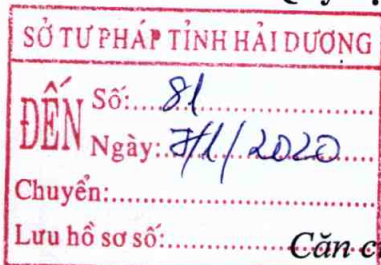 SỞ TƯ PHÁP TỈNH HẢI DƯƠNG
ĐẾN
Số:....81....................
Ngày: 7/1/2020
Chuyển:................................
Lưu hồ sơ số:..................... Căn c